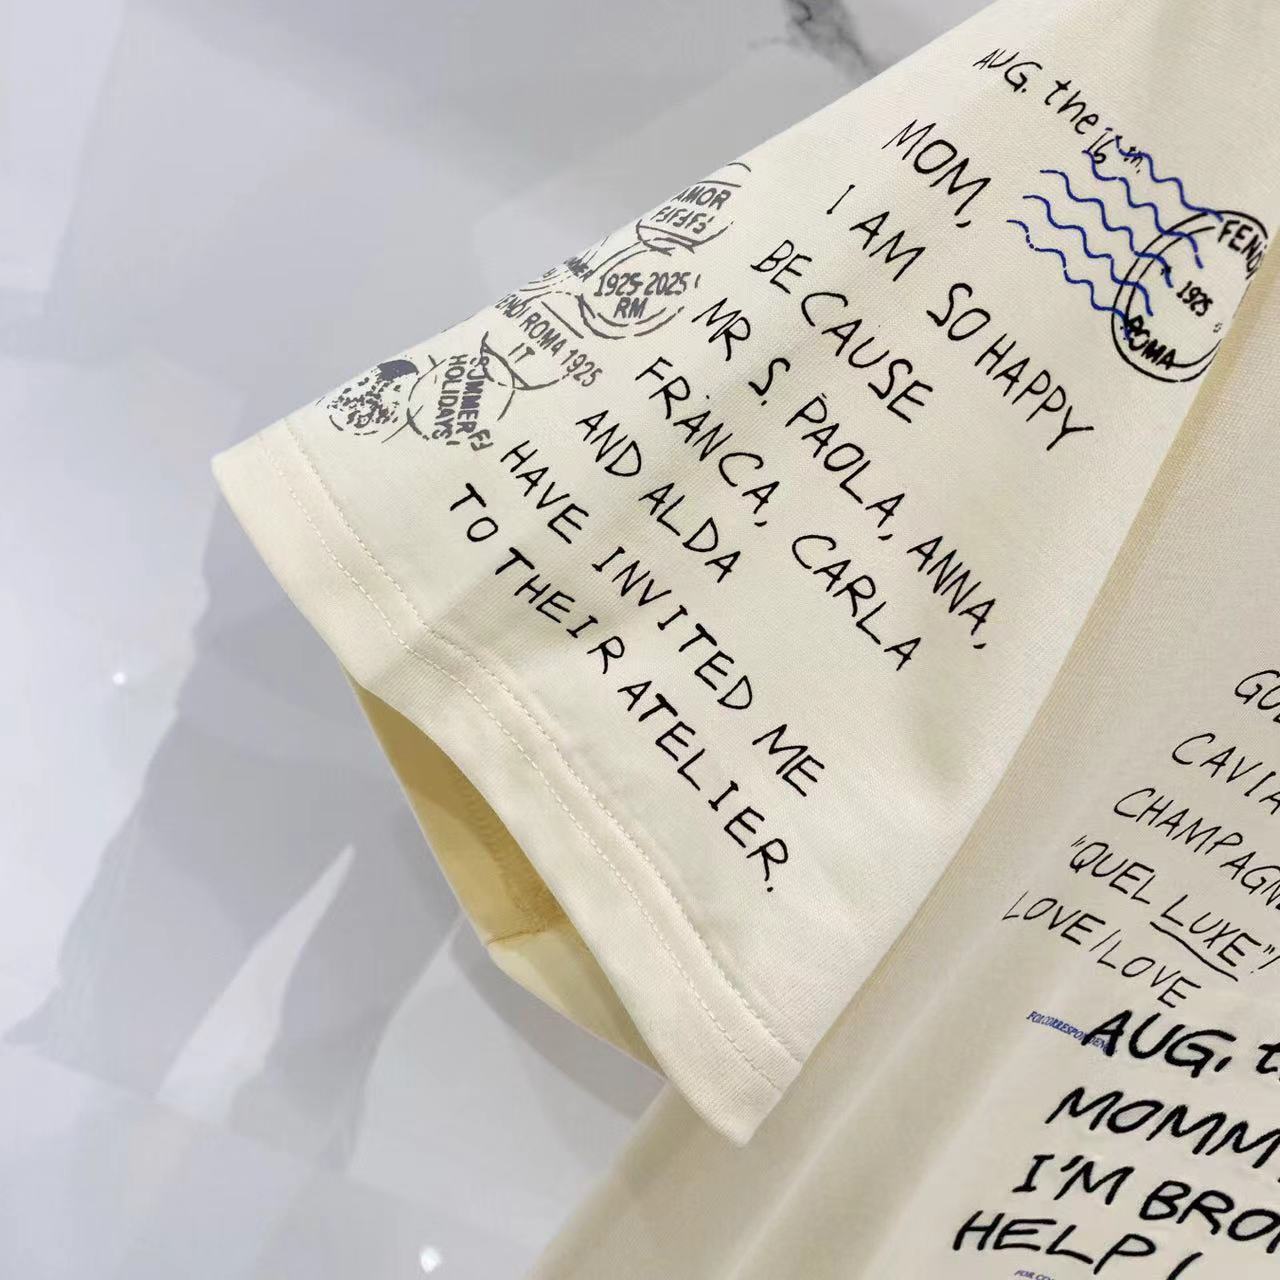 AUG. the 16th.
MOM,
I AM SO HAPPY
BECAUSE
MR S. PAOLA, ANNA,
FRANCA, CARLA
AND ALDA
HAVE INVITED ME
TO THEIR ATELIER.
FENDI
1925
ROMA
AMOR
FFFFFF
1925-2025
RM
FENDI ROMA 1925
IT
SUMMER FF
HOLIDAYS
CAVIA
CHAMPAGN
"QUEL LUXE"!
LOVE/LOVE
FOR CORRESPONDENCE
AUG. t
MOMM
I'M BRO
HELP!
FOR CO